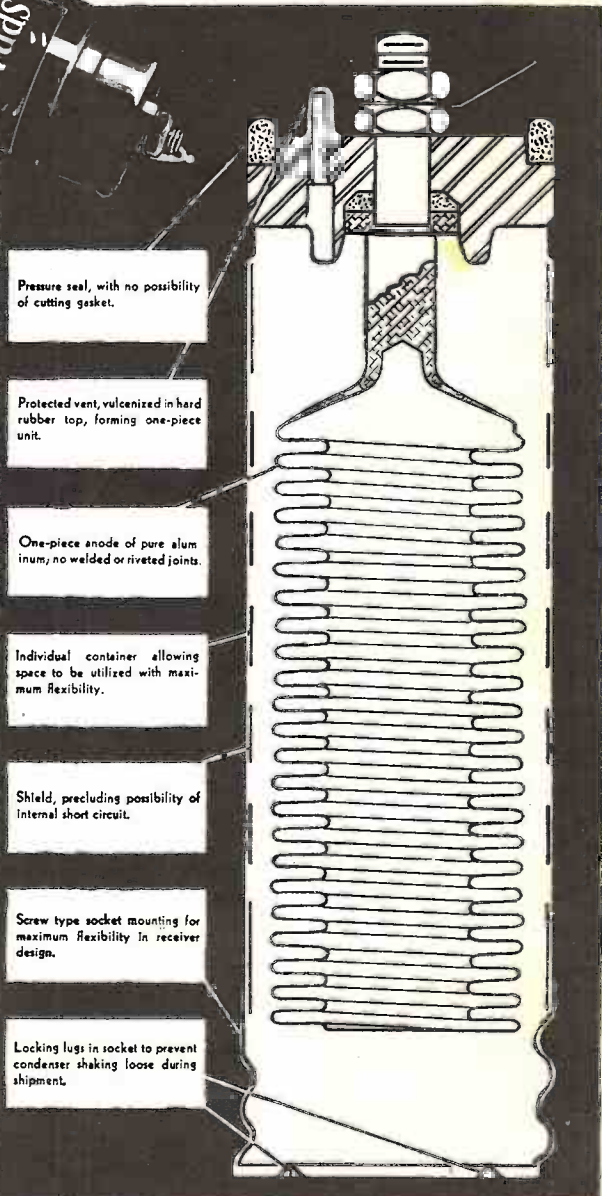 Pressure seal, with no possibility
of cutting gasket.
Protected vent, vulcenized in hard
rubber top, forming one-piece
unit.
One-piece anode of pure alum
inum; no welded or riveted joints.
Individual container allowing
space to be utilized with maxi-
mum flexibility.
Shield, precluding possibility of
internal short circuit.
Screw type socket mounting for
maximum flexibility in receiver
design.
Locking lugs in socket to prevent
condenser shaking loose during
shipment.